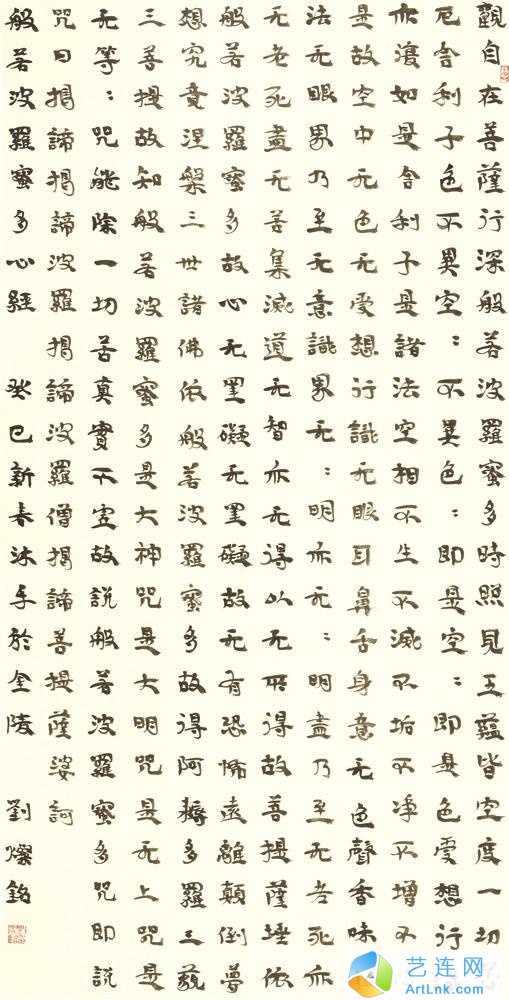 觀自在菩薩行深般若波羅蜜多時照見五蘊皆空度一切
厄舍利子色不異空：不異色：即是空：即是色受想行
亦復如是舍利子是諸法空相不生不滅不垢不淨不增不
是故空中无色无受想行識无眼耳鼻舌身意无色聲香味
法无眼界乃至无意識界无：明亦无：明盡乃至无老死亦
无老死盡无苦集滅道无智亦无得以无所得故菩提薩埵依
般若波羅蜜多故心无罣礙无罣礙故无有恐怖遠離顛倒夢
想究竟涅槃三世諸佛依般若波羅蜜多故得阿耨多羅三藐
三菩提故知般若波羅蜜多是大神咒是大明咒是无上咒是
无等：咒能除一切苦真實不虛故說般若波羅蜜多咒即說
咒曰揭諦揭諦波羅揭諦波羅僧揭諦菩提薩婆訶
般若波羅蜜多心經 癸巳新春沐手於金陵 劉燦銘
艺连网
ArtLnk.com